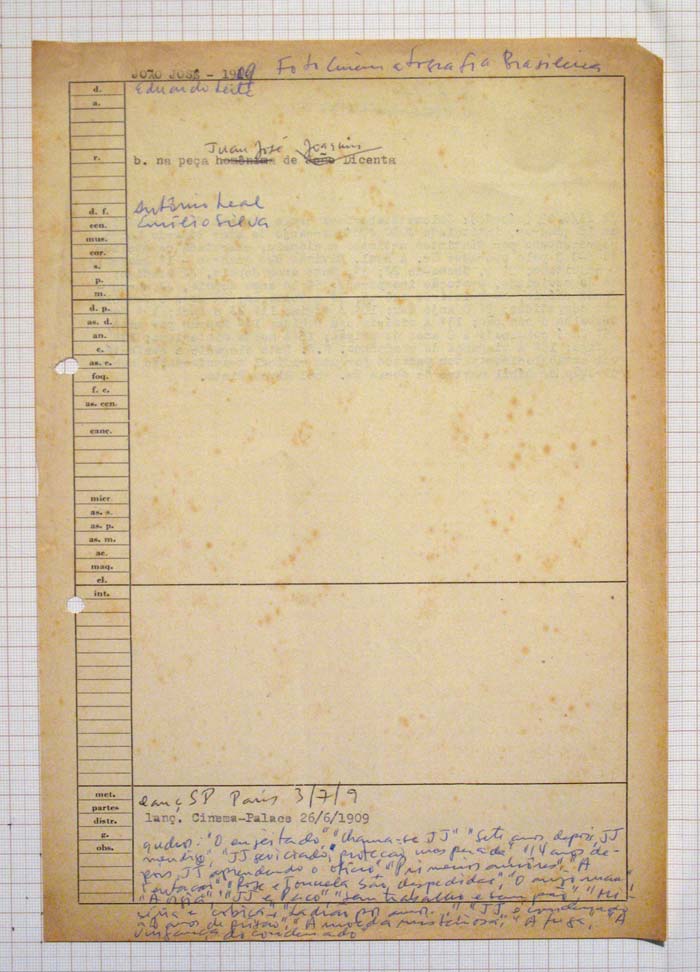 JOÃO JOSÉ - 1909 Fotocinematografia Brasileira
d. Eduardo Leite
a.
Juan José Joaquin
r. b. na peça homônima de João Dicenta
d. f. Antônio Leal
cen. Emílio Silva
mus.
cor.
s.
p.
m.
d. p.
as. d.
an.
c.
as. c.
foq.
f. c.
as. cen.
canc.
micr
as. s.
as. p.
as. m.
ac.
maq.
el.
int.
met. lanç SP Paris 3/7/9
partes
distr. lanç. Cinema-Palace 26/6/1909
g.
obs. quadros: "O enjeitado" "Chama-se JJ" "Sete anos depois, JJ
mendigo", "JJ seviciado, proteção inesperada", "14 anos de-
pois, JJ aprendendo o ofício" "Primeiros amores", "A
tentação" "Rose e Tonuela são despedidas", "O
"A orgia", "JJ e Paco" "Sem trabalho e sem pão", "Mi-
séria e cobiça", "Ladrão por amor", "JJ é condenado
a 8 anos de prisão", "A misteriosa", "A fuga", "A
vingança do condenado"